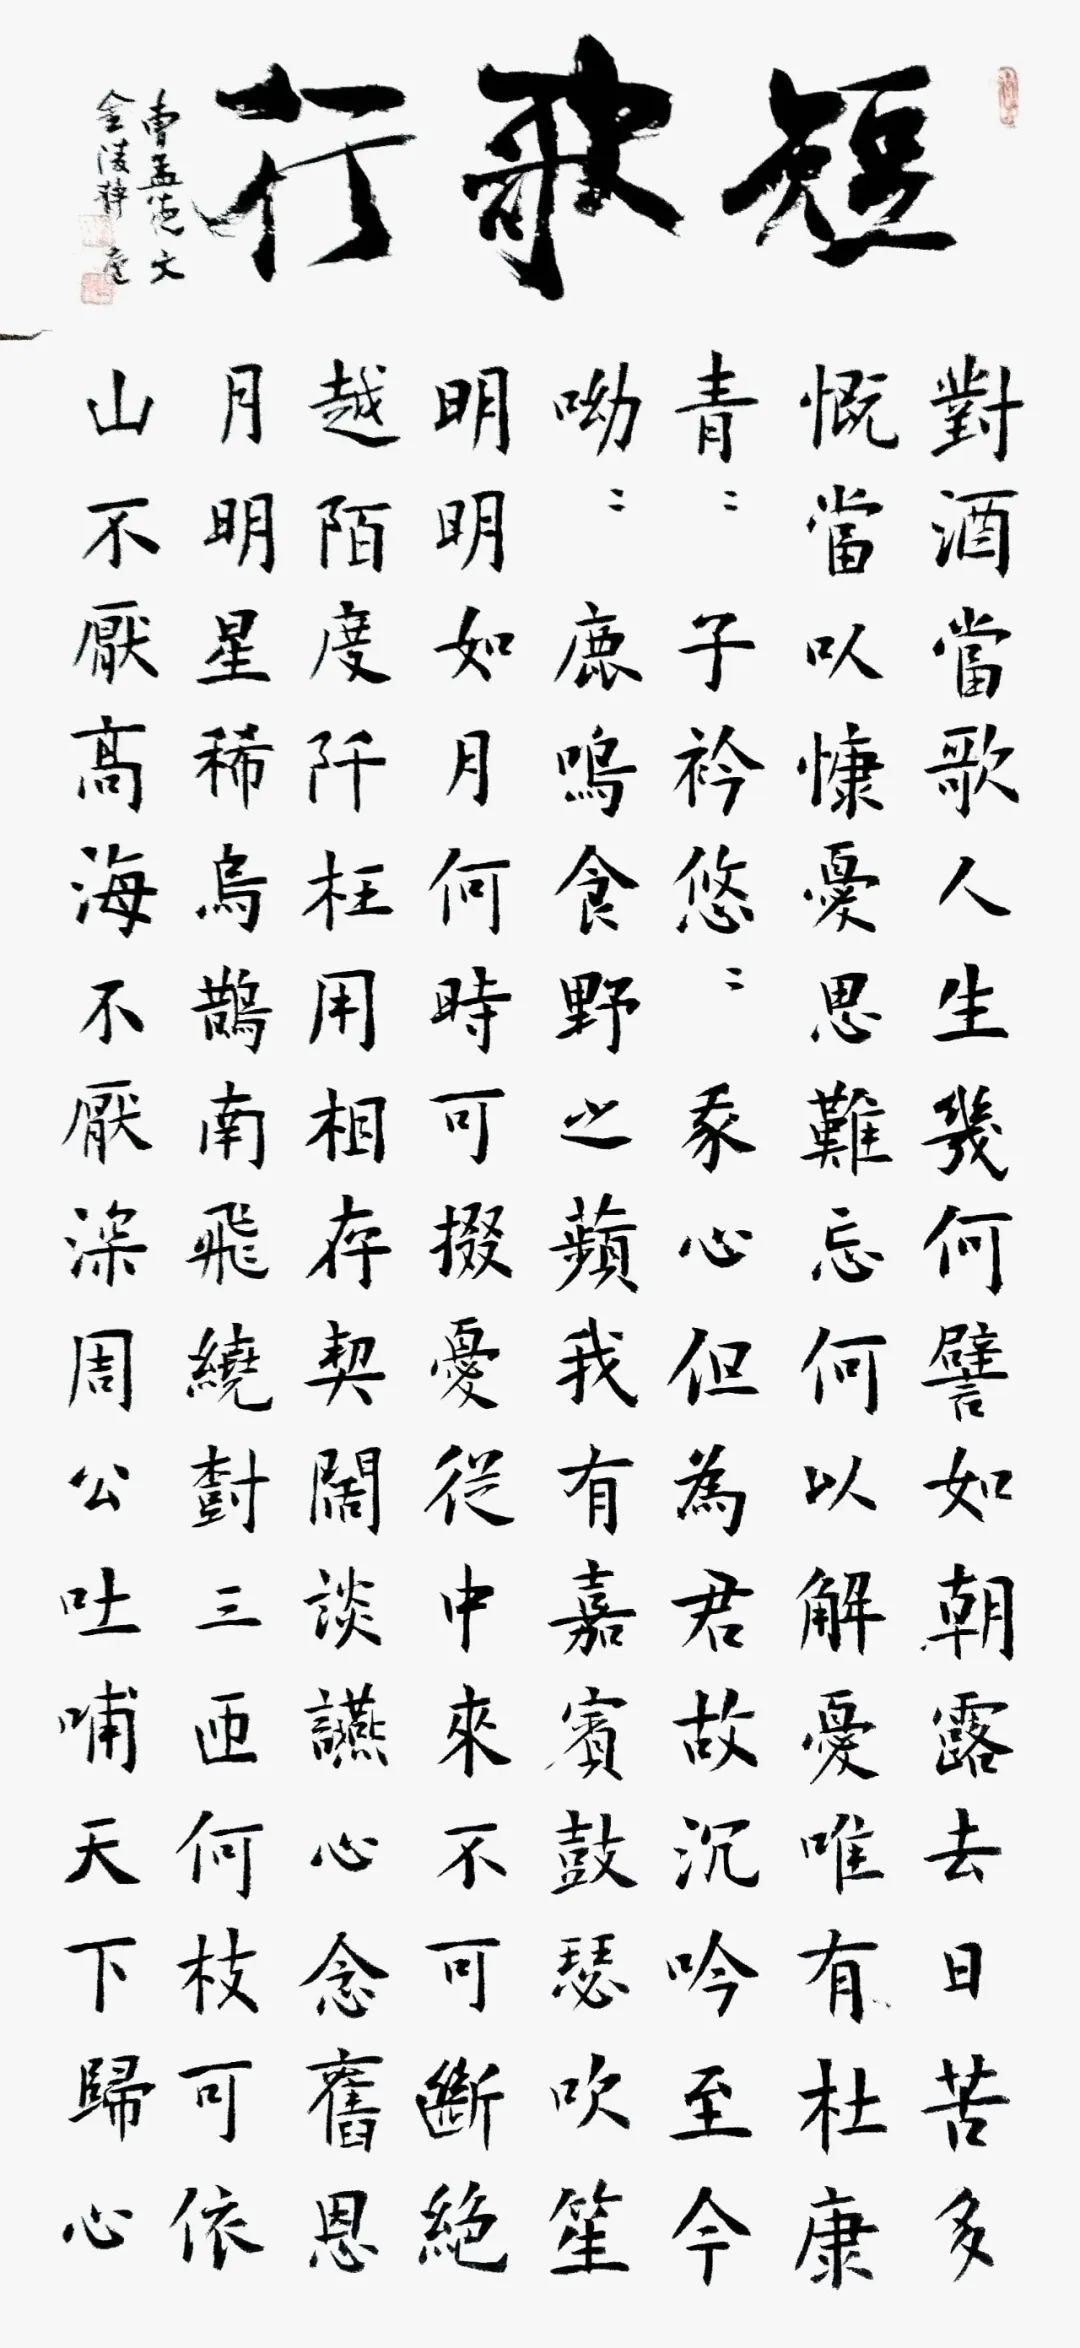 短歌行
對酒當歌人生幾何譬如朝露去日苦多
慨當以慷憂思難忘何以解憂唯有杜康
青〻子衿悠〻我心但為君故沉吟至今
呦〻鹿鳴食野之蘋我有嘉賓鼓瑟吹笙
明明如月何時可掇憂從中來不可斷絕
越陌度阡枉用相存契闊談讌心念舊恩
月明星稀烏鵲南飛繞樹三匝何枝可依
山不厭高海不厭深周公吐哺天下歸心
曹孟德文
金陵靜庵